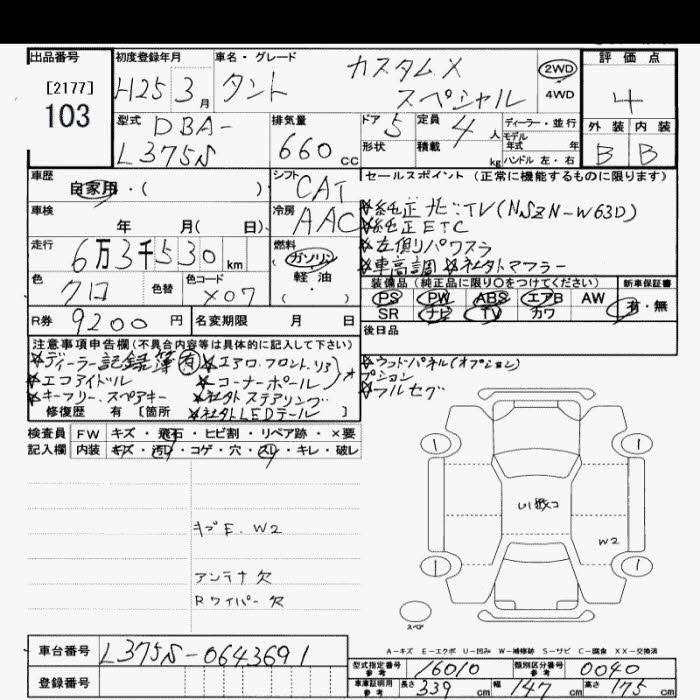 出品番号
[2177]
103
初度登録年月
H25 3月
車名・グレード
タント カスタムX
スペシャル
2WD
4WD
評価点
4
外装 内装
B B
型式
DBA-
L375S
排気量
660cc
ドア 5
定員 4人
形状
積載 kg
ディーラー・並行
モデル
年式 年
ハンドル 左・右
車歴
自家用・( )
シフト
CAT
セールスポイント (正常に機能するものに限ります)
車検
年 月( 日)
冷房
AAC
☆純正ナビ:TV(NSZN-W63D)
☆純正ETC
☆左側リパワスラ
☆車高調 ☆社外マフラー
走行
6万3千530km
燃料
ガソリン
軽・油
色
クロ
色替
色コード
X07
装備品(純正品に限り○をつけてください)
新車保証書
PS PW ABS エアB AW
SR ナビ TV カワ
有・無
R券 9200円
名変期限 月 日
後日品
注意事項申告欄(不具合内容等は具体的に記入して下さい)
☆ディーラー記録簿有 ☆エアロ.フロント.リア
☆エコアイドル ☆コーナーポール
☆キーフリー.スペアキー ☆社外ステアリング
修復歴 有 [箇所 ☆社外LEDテール ]
☆ウッドパネル(オプション)
プション
☆フルセグ
検査員
記入欄
FW キズ・飛石・ヒビ割・リペア跡・×要
内装 キズ・汚れ・コゲ・穴・スレ・キレ・破レ
1 1
W2
1 1
キズE. W2
アンテナ欠
Rワイパー欠
スペア
A-キズ E-エクボ U-凹み W-補修跡 S-サビ C-腐食 XX-交換済
車台番号 L375S-0643691
登録番号
型式指定番号
参考
16010
類別区分番号
参考
0040
車庫証明用
参考
長さ 339cm 幅 147cm 高さ 175cm